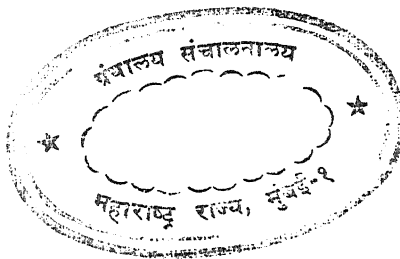 ग्रंथालय संचालनालय
महाराष्ट्र राज्य, मुंबई-१